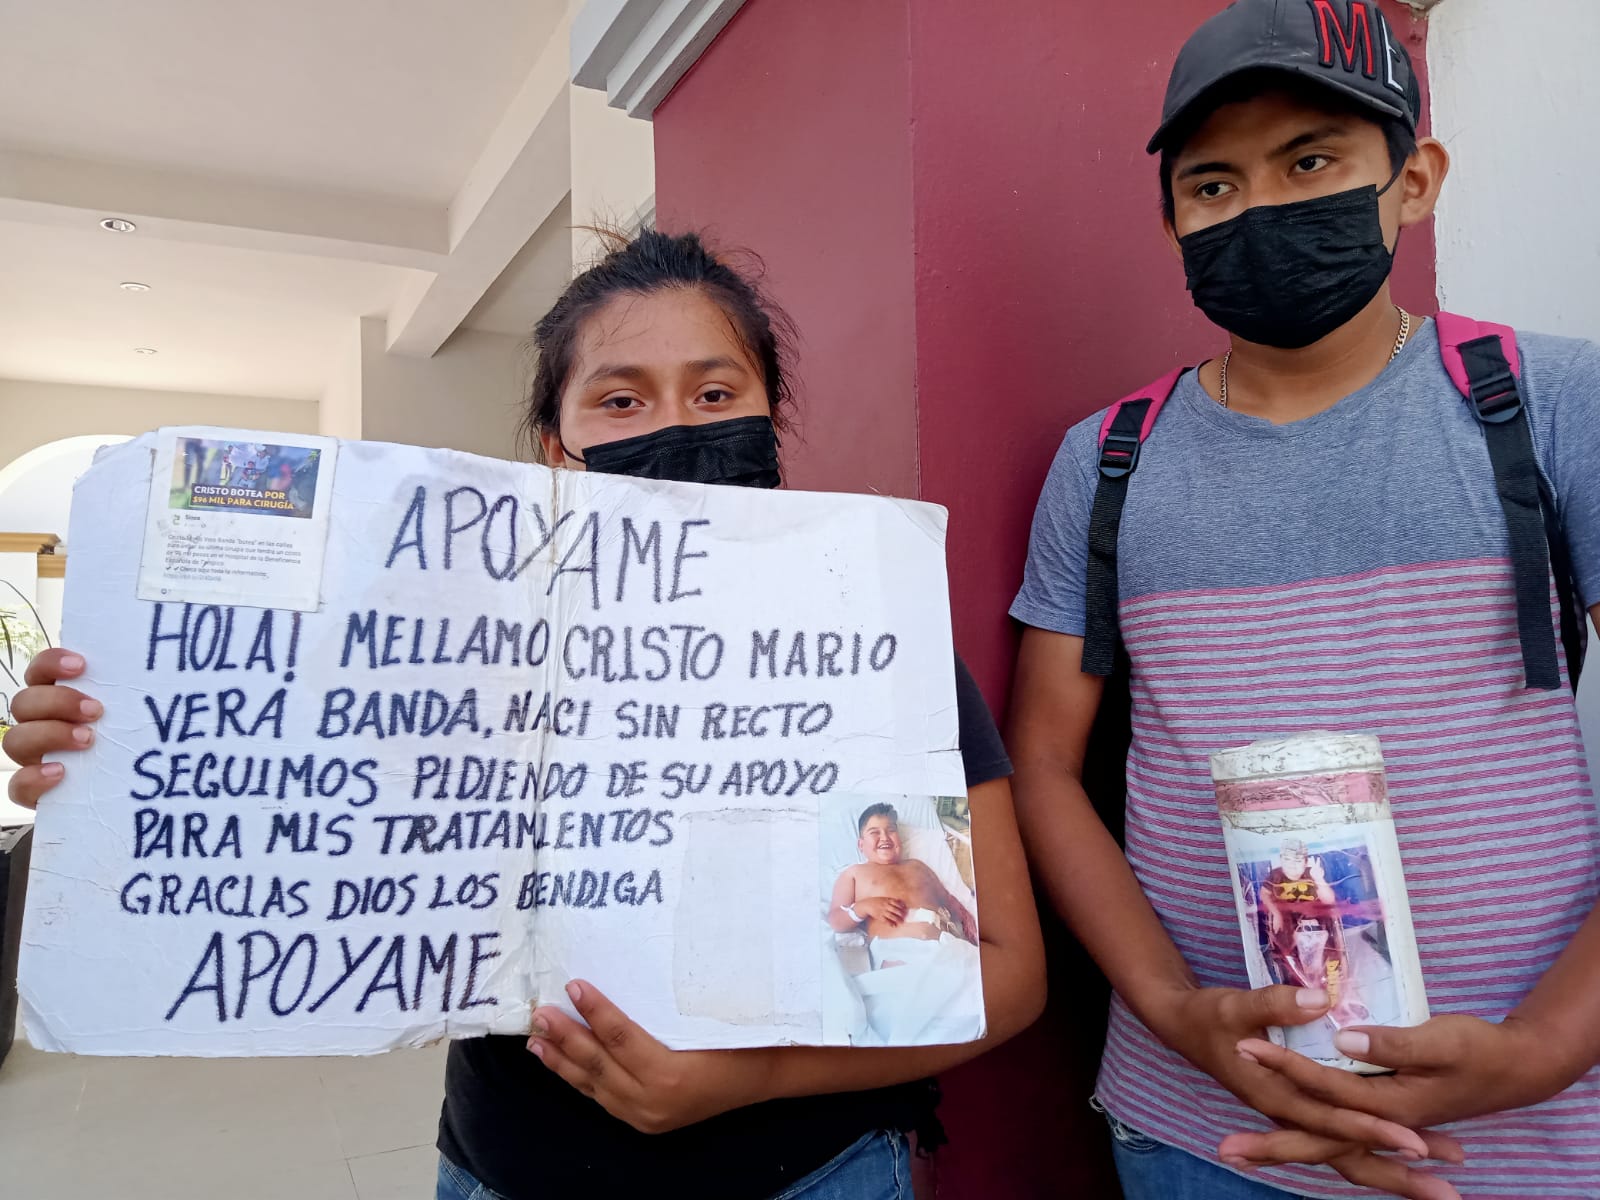 ME
CRISTO BOTEA POR
$96 MIL PARA CIRUGÍA
APOYAME
HOLA! MELLAMO CRISTO MARIO
VERA BANDA, NACI SIN RECTO
SEGUIMOS PIDIENDO DE SU APOYO
PARA MIS TRATAMIENTOS
GRACIAS DIOS LOS BENDIGA
APOYAME